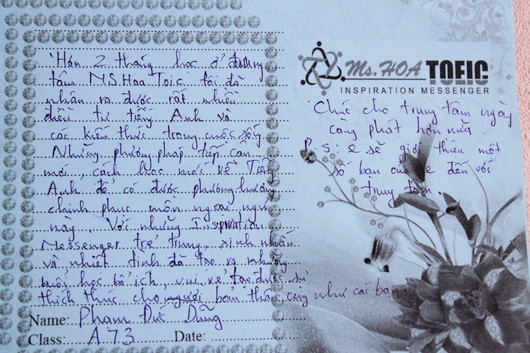 Hơn 2 tháng học ở trung
tâm MS.Hoa Toeic tôi đã
nhận ra được rất nhiều
điều từ tiếng Anh và
các kiến thức trong cuộc sống
Những phương pháp tiếp cận
mới, cách học mới về Tiếng
Anh để có được phương hướng
chinh phục môn ngoại ngữ
này. Với những Inspiration
Messenger trẻ trung, xinh
và nhiệt tình đã tạo ra những
buổi học bổ ích, vui vẻ tạo được sự
thích thú cho người bản thân cũng như các bạn
Name: Phạm Đức Dũng
Class: A73 Date:
Ms. HOA TOEIC
INSPIRATION MESSENGER
Chúc cho trung tâm ngày
càng phát hơn nữa
P.S: e sẽ giới thiệu một
số bạn của e đến với
trung tâm.